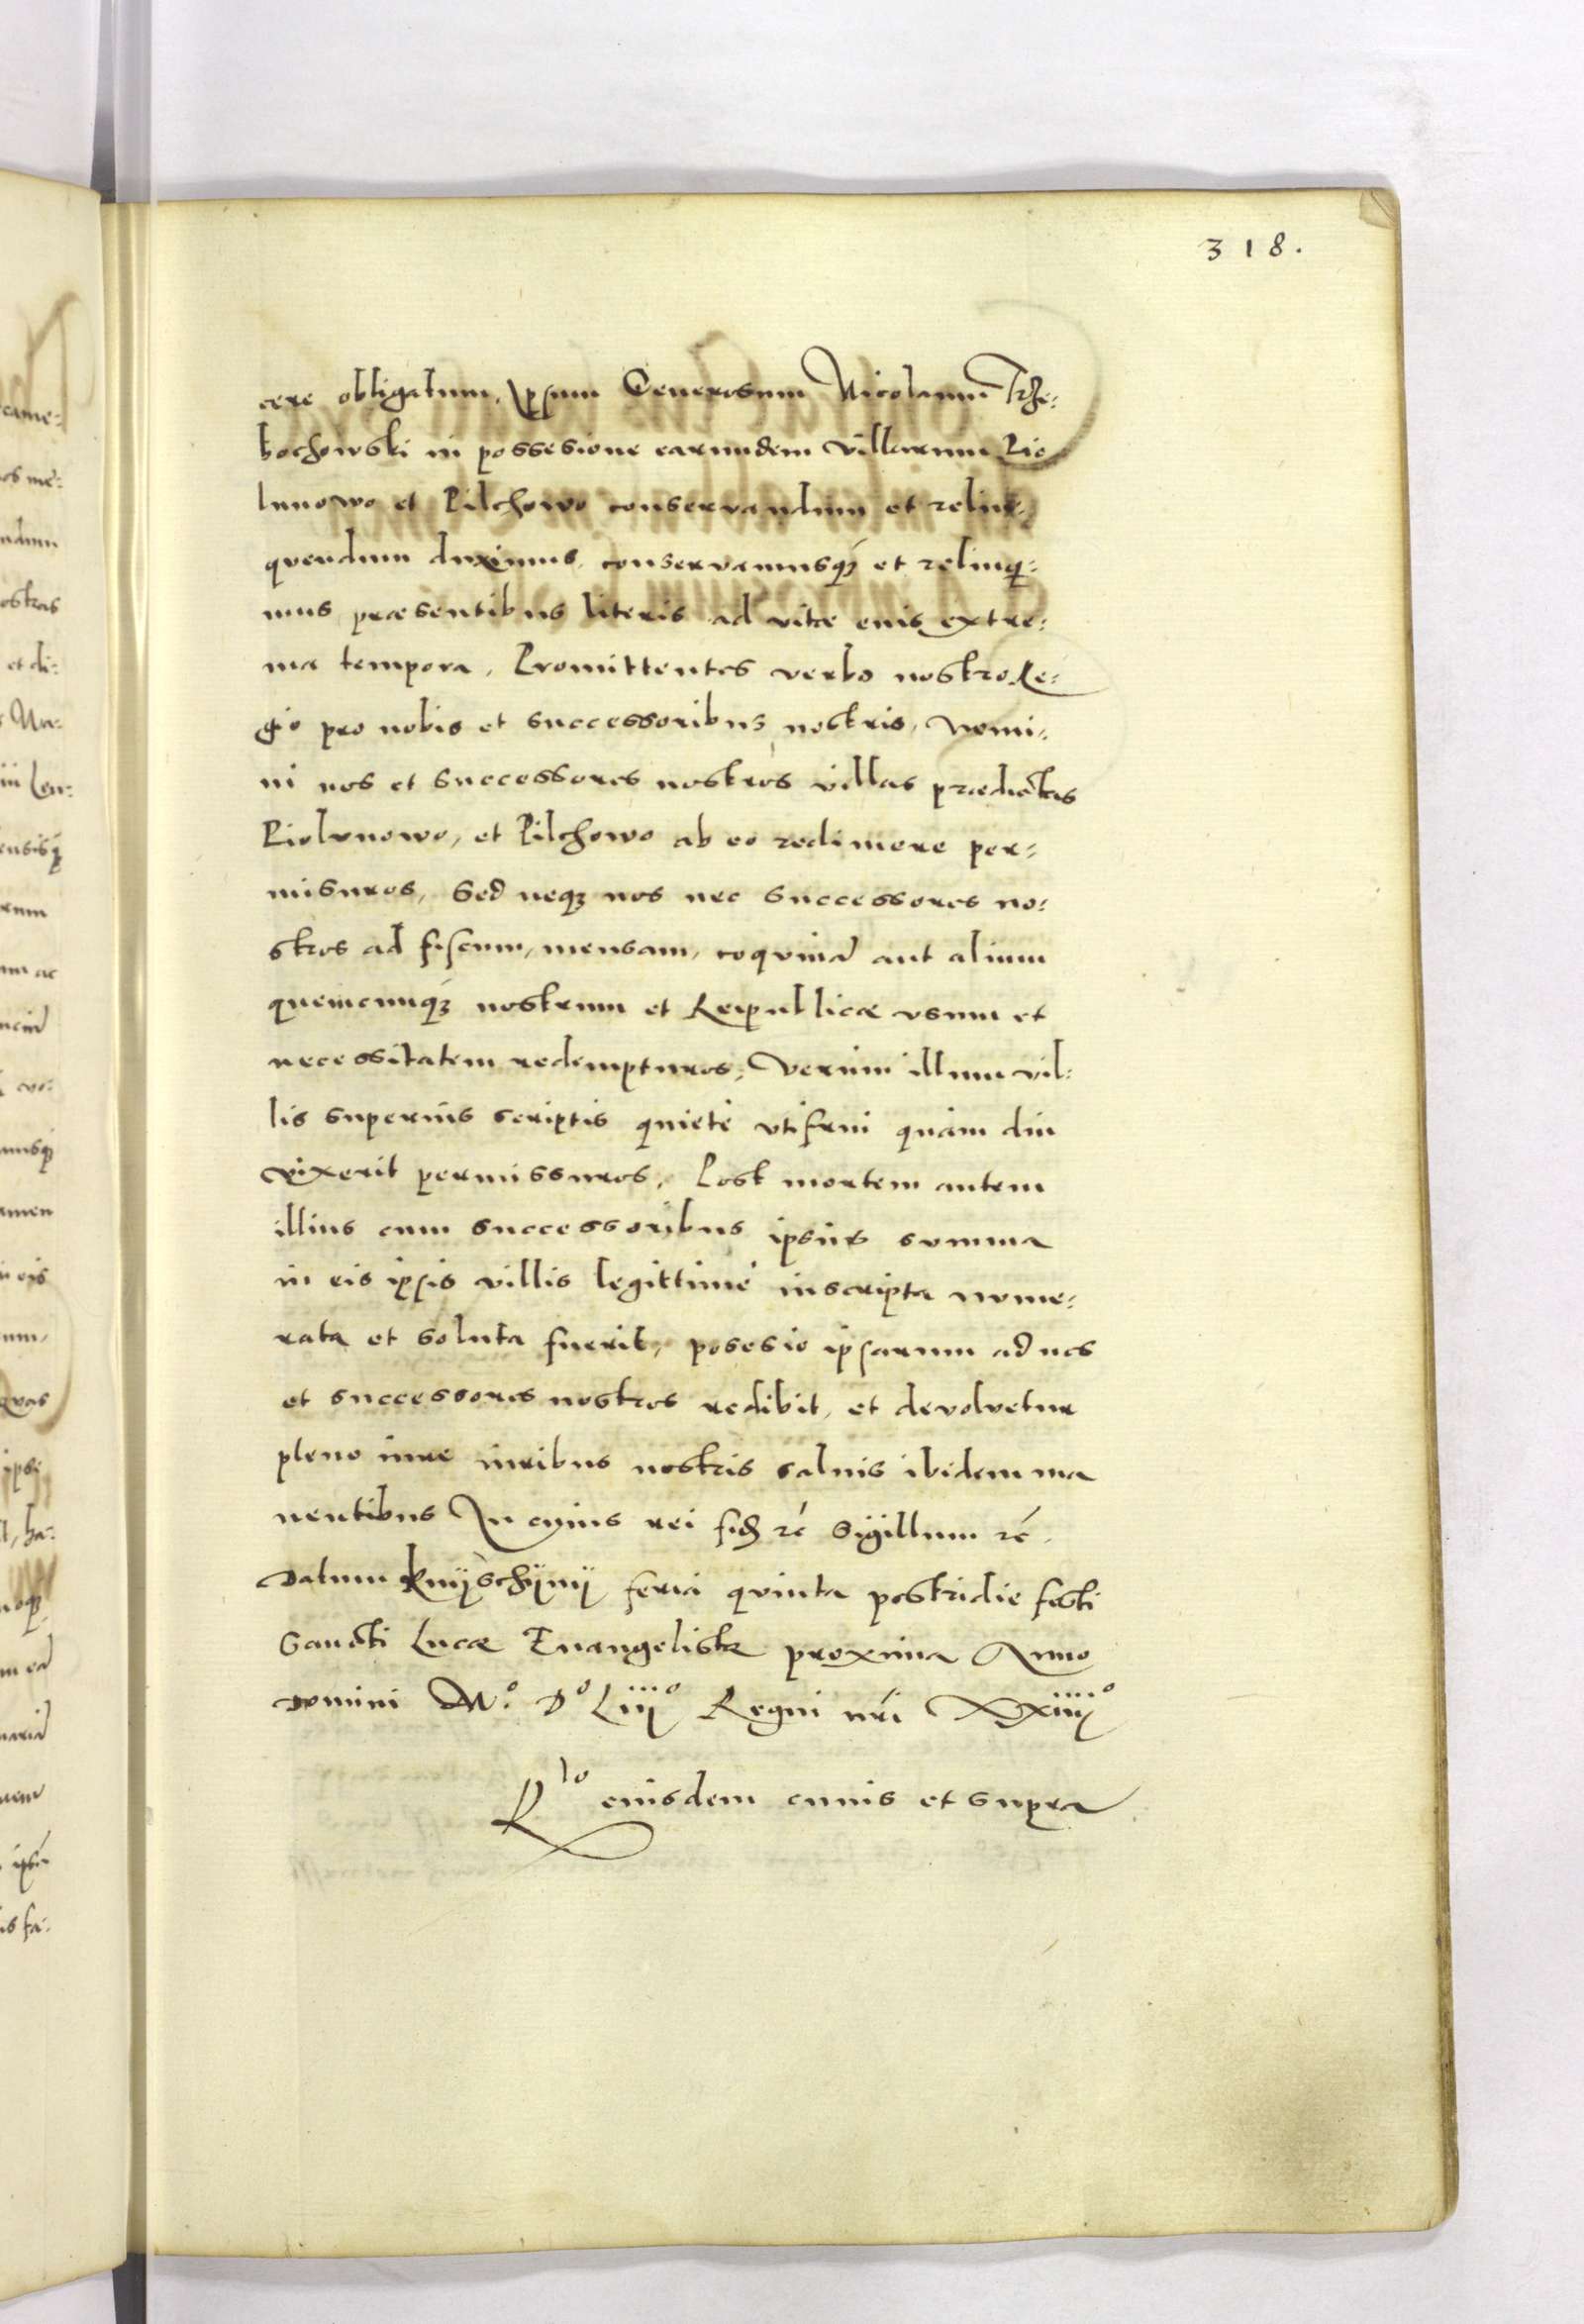 318.
cere obligatum, Ipsum Generosum Nicolaum Trze⸗
bochowski in possesione earumdem villarum Pio
lunowo et Pilchowo conservandum et relin⸗
quendum duximus, conservamusq3 et relinq⸗
mus præsentibus literis ad vitæ euis extre⸗
ma tempora, Promittentes verbo nostro Re⸗
gio pro nobis et successoribus nostris, Nemi⸗
ni nos et successores nostros villas prædictas
Piolunowo, et Pilchowo ab eo redimere per⸗
misuros, Sed neq3 nos nec successores no⸗
stros ad fiscum, mensam, coquinā aut alium
quemcunq3 nostrum et Reipublicæ vsum et
necessitatem redempturos, Verum illum vil⸗
lis superius scriptis quietè vtifrui quàm diu
vixerit permissuros, Post mortem autem
illius cum successoribus ipsius summa
in eis ipsis villis legittimè inscripta nume⸗
rata et soluta fuerit, posesio ipsarum ad nos
et successores nostros redibit, et devolvetur
pleno iure iuribus nostris saluis ibidem ma
nentibus In cuius rei fid̄ rc̄ Sigillum rc̄.
Datum Knijschijnij feria quinta postridie festi
Sancti Lucæ Euangelistæ proxima Anno
Domini M.º Dº Liijº Regni nr̄i XXiiijº
Rlº eiusdem cuius et supra